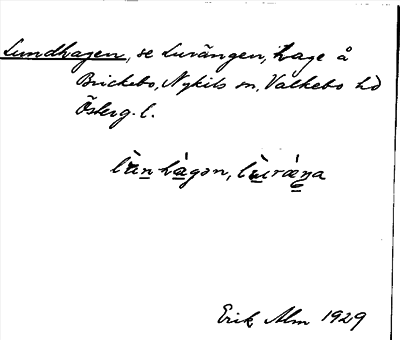 Lundhagen, se Lurängen, hage å
Brickebo, Nykils sn, Valkebo hd
Österg. l.
Erik Alm 1929